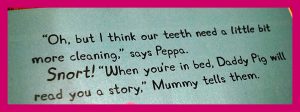 "Oh, but I think our teeth need a little bit
more cleaning," says Peppa.
Snort! "When you're in bed, Daddy Pig will
read you a story," Mummy tells them.